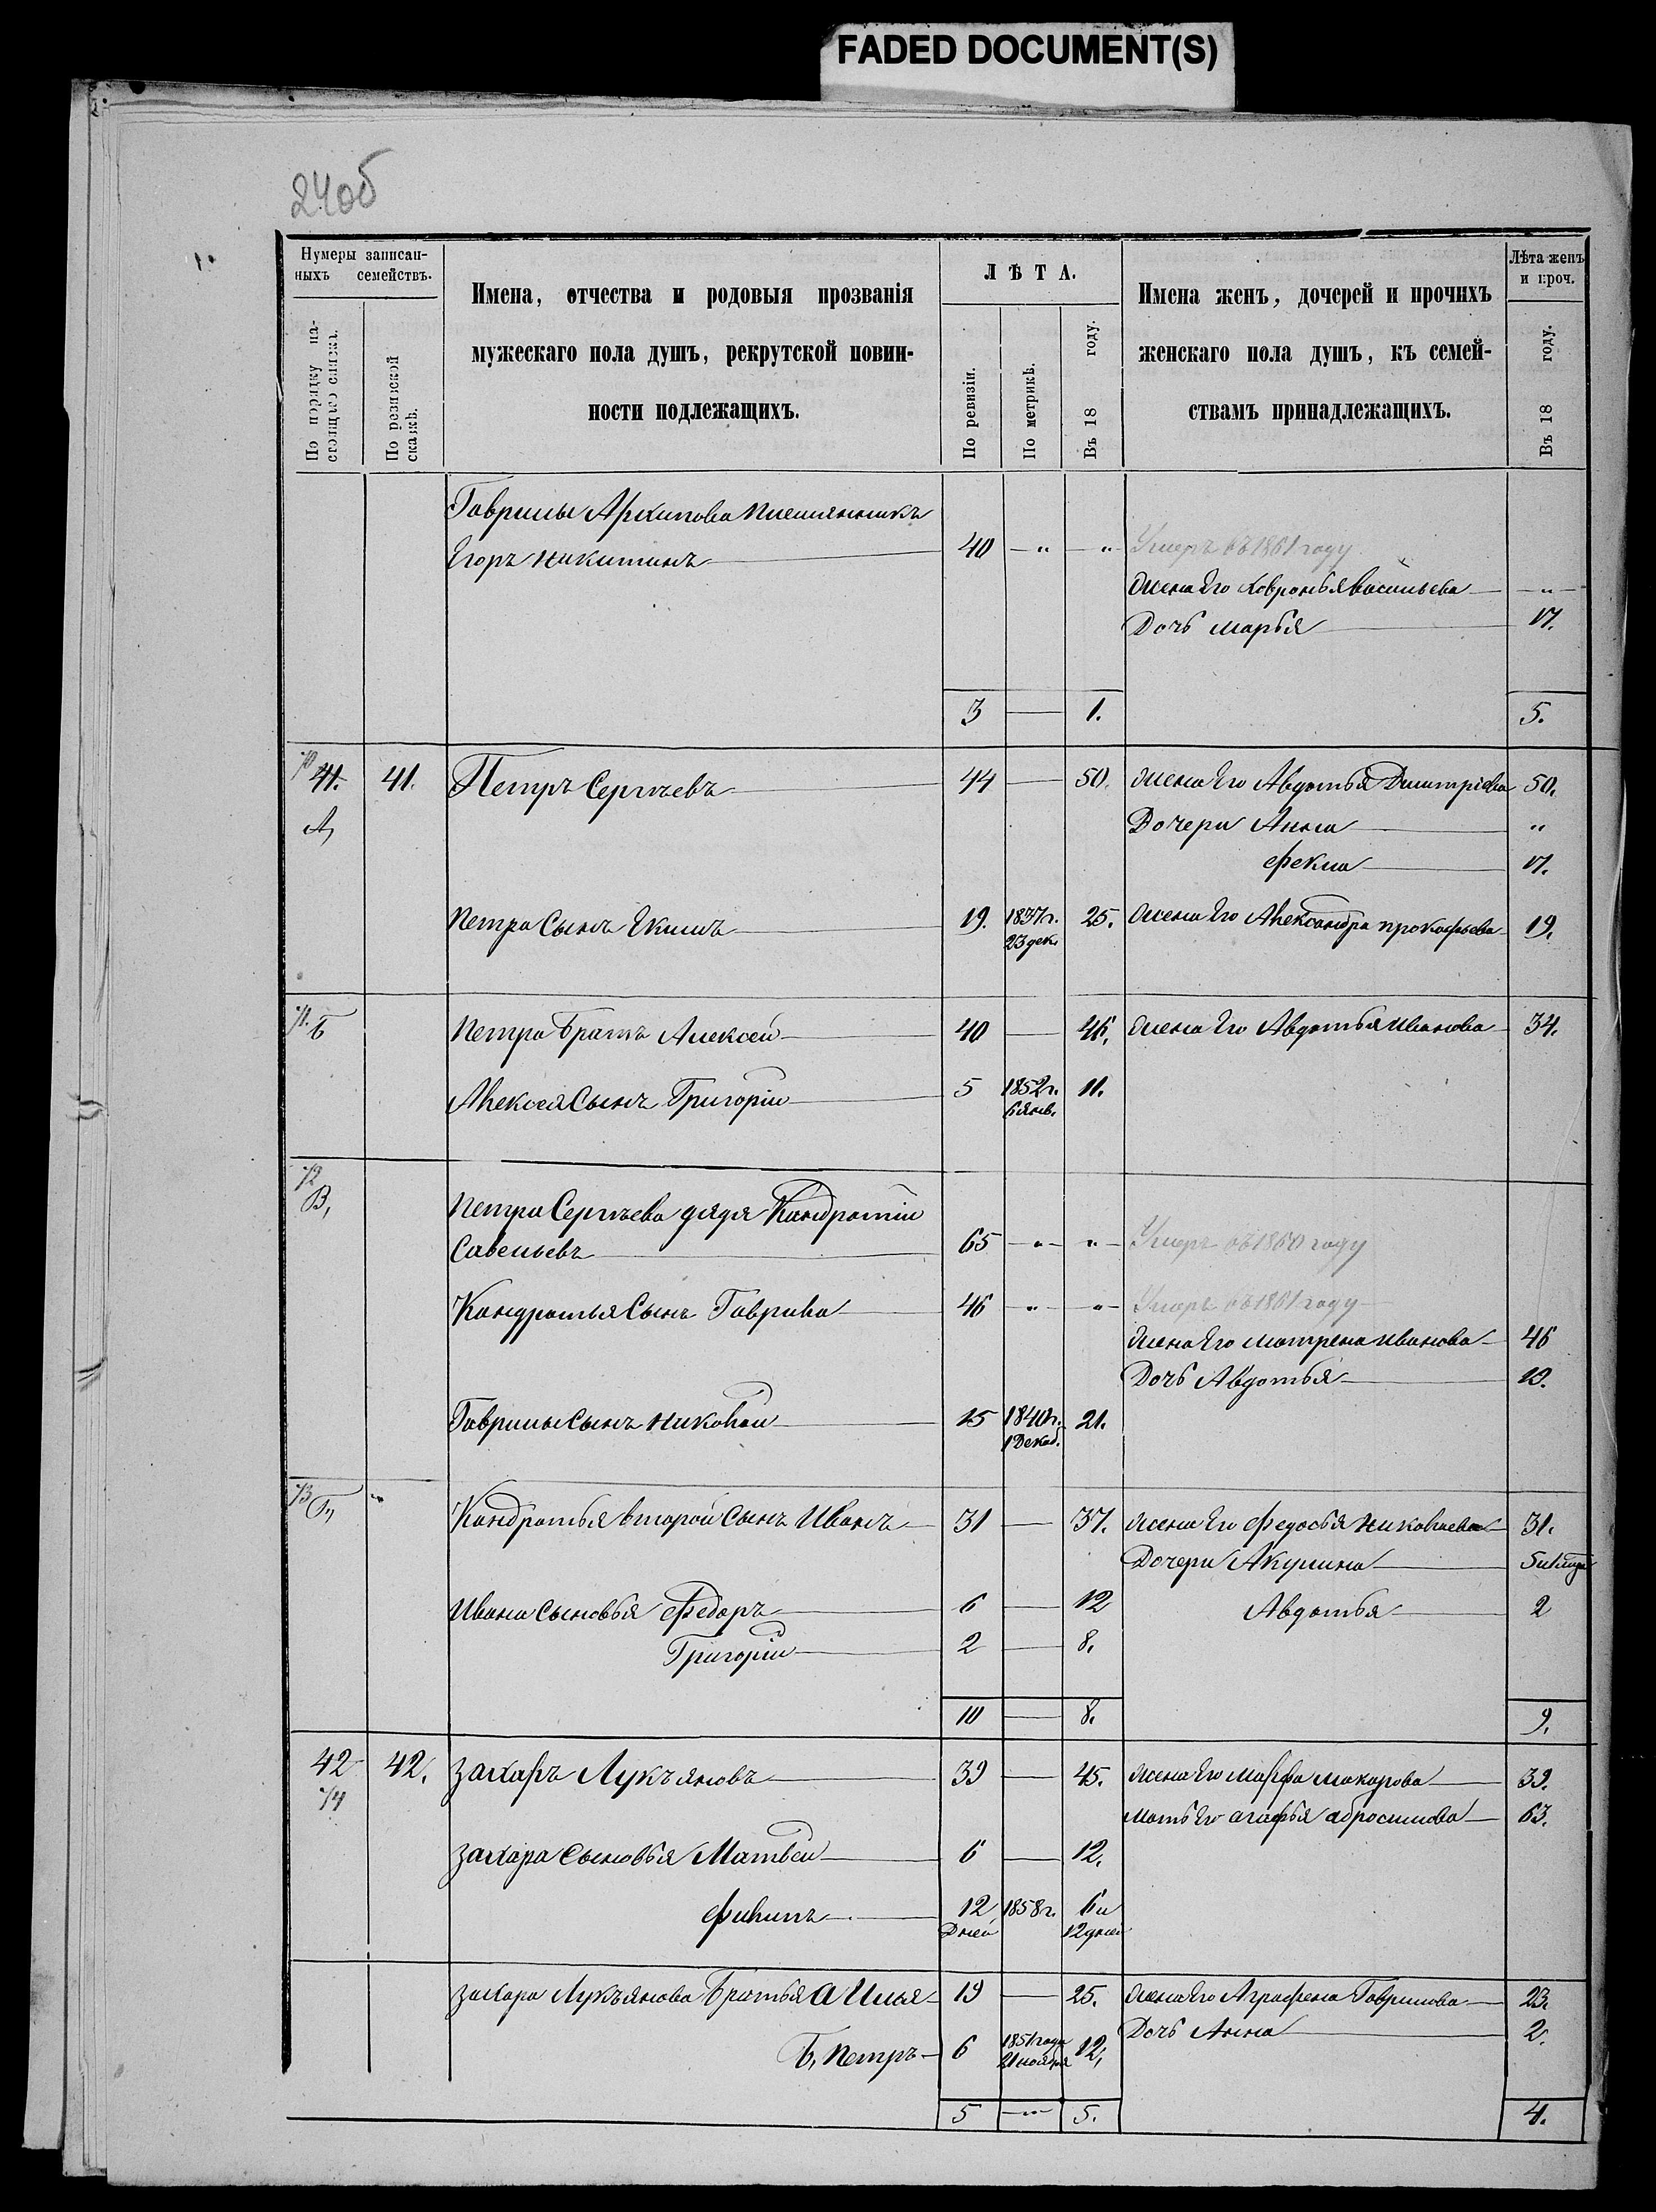 FADED DOCUMENT(S)
24об
Нумеры записан-
ныхъ семействъ.
По порядку на-
стоящаго списка.
По ревизской
сказкѣ.
Имена, отчества и родовыя прозванія
мужескаго пола душъ, рекрутской повин-
ности подлежащихъ.
ЛѢТА.
По ревизіи.
По метрикѣ.
Въ 18 году.
Имена женъ, дочерей и прочихъ
женскаго пола душъ, къ семей-
ствамъ принадлежащихъ.
Лѣта женъ
и проч.
Въ 18 году.
Гаврилы Архипова племянникъ
Егоръ Никитинъ 40 — " — " Умеръ въ 1861 году
Жена Его Ховронья Васильева — " —
Дочь Марья 17.
3 — 1. 5.
70
41. 41. Петръ Сергѣевъ 44 — 50. Жена Его Авдотья Дмитріева 50.
А, Дочери Анна "
Фекла 17.
Петра Сынъ Екимъ 19. 1837г. 25. Жена Его Александра Прокофьева 19.
23 дек.
71. Б Петра Братъ Алексей 40 — 46, Жена Его Авдотья Иванова 34.
Алексея Сынъ Григорій 5 1852г. 11.
6 янв.
72
В, Петра Сергѣева дядя Кандратій
Савельевъ 65 — " — " — Умеръ въ 1860 году
Кандратья Сынъ Гаврила 46 — " — " — Умеръ въ 1861 году
Жена Его Матрена Иванова 46
Дочь Авдотья 13.
Гаврилы Сынъ Николай 15 1840г. 21.
1 Декаб.
73 Г, " Кандратья второй Сынъ Иванъ 31 — 37. Жена Его Федосья Николаева 31.
Дочери Акулина
Ивана Сыновья Федоръ 6 — 12 Авдотья 2
Григорій 2 — 8.
10 — 8. 9.
42 42. Захаръ Лукъяновъ 39 — 45. Жена Его Марфа Макарова 39.
74 Мать Его Агафья Абросимова 63.
Захара Сыновья Матвей 6 — 12.
Филипъ 12 1858г. 6 и
Дней 12 дней
Захара Лукъянова Братья А Илья 19 — 25. Жена Его Аграфена Гаврилова 23.
Дочь Анна 2.
Б, Петръ 6 1851 года 12,
21 ноября
5 — " — 5. 4.